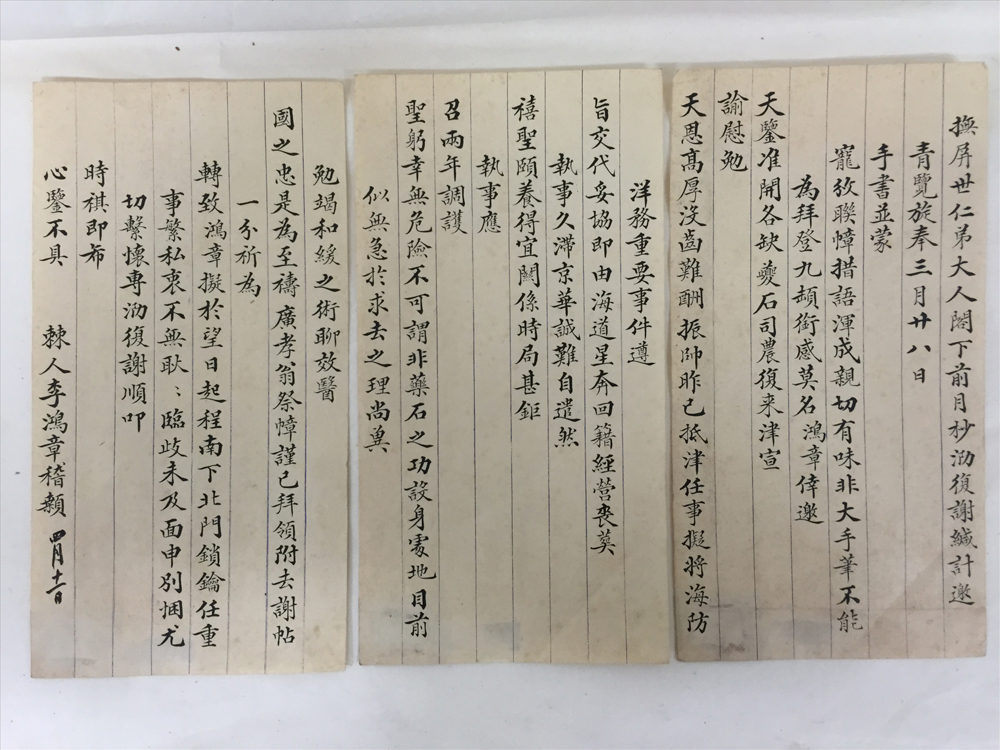 撫屏世仁弟大人閣下前月杪泐復謝緘計邀
青覽旋奉三月廿八日
手書並蒙
寵攽聯幛措語渾成親切有味非大手筆不能
為拜登九頓銜感莫名鴻章倖邀
天鑒准開各缺夔石司農復来津宣
諭慰勉
天恩高厚没齒難酬振帥昨已抵津任事擬將海防
洋務重要事件遵
旨交代妥協即由海道星奔回籍經營喪奠
執事久滯京華誠難自遣然
禧聖頤養得宜關係時局甚鉅
執事應
召兩年調護
聖躬幸無危險不可謂非藥石之功設身處地目前
似無急於求去之理尚冀
勉竭和緩之術聊效醫
國之忠是為至禱廣孝翁祭幛謹已拜領附去謝帖
一分祈為
轉致鴻章擬於望日起程南下北門鎖鑰任重
事繁私衷不無耿〻臨歧未及面申別悃尤
切繫懷專泐復謝順叩
時祺即希
心鑒不具　棘人李鴻章稽顙　四月十一日